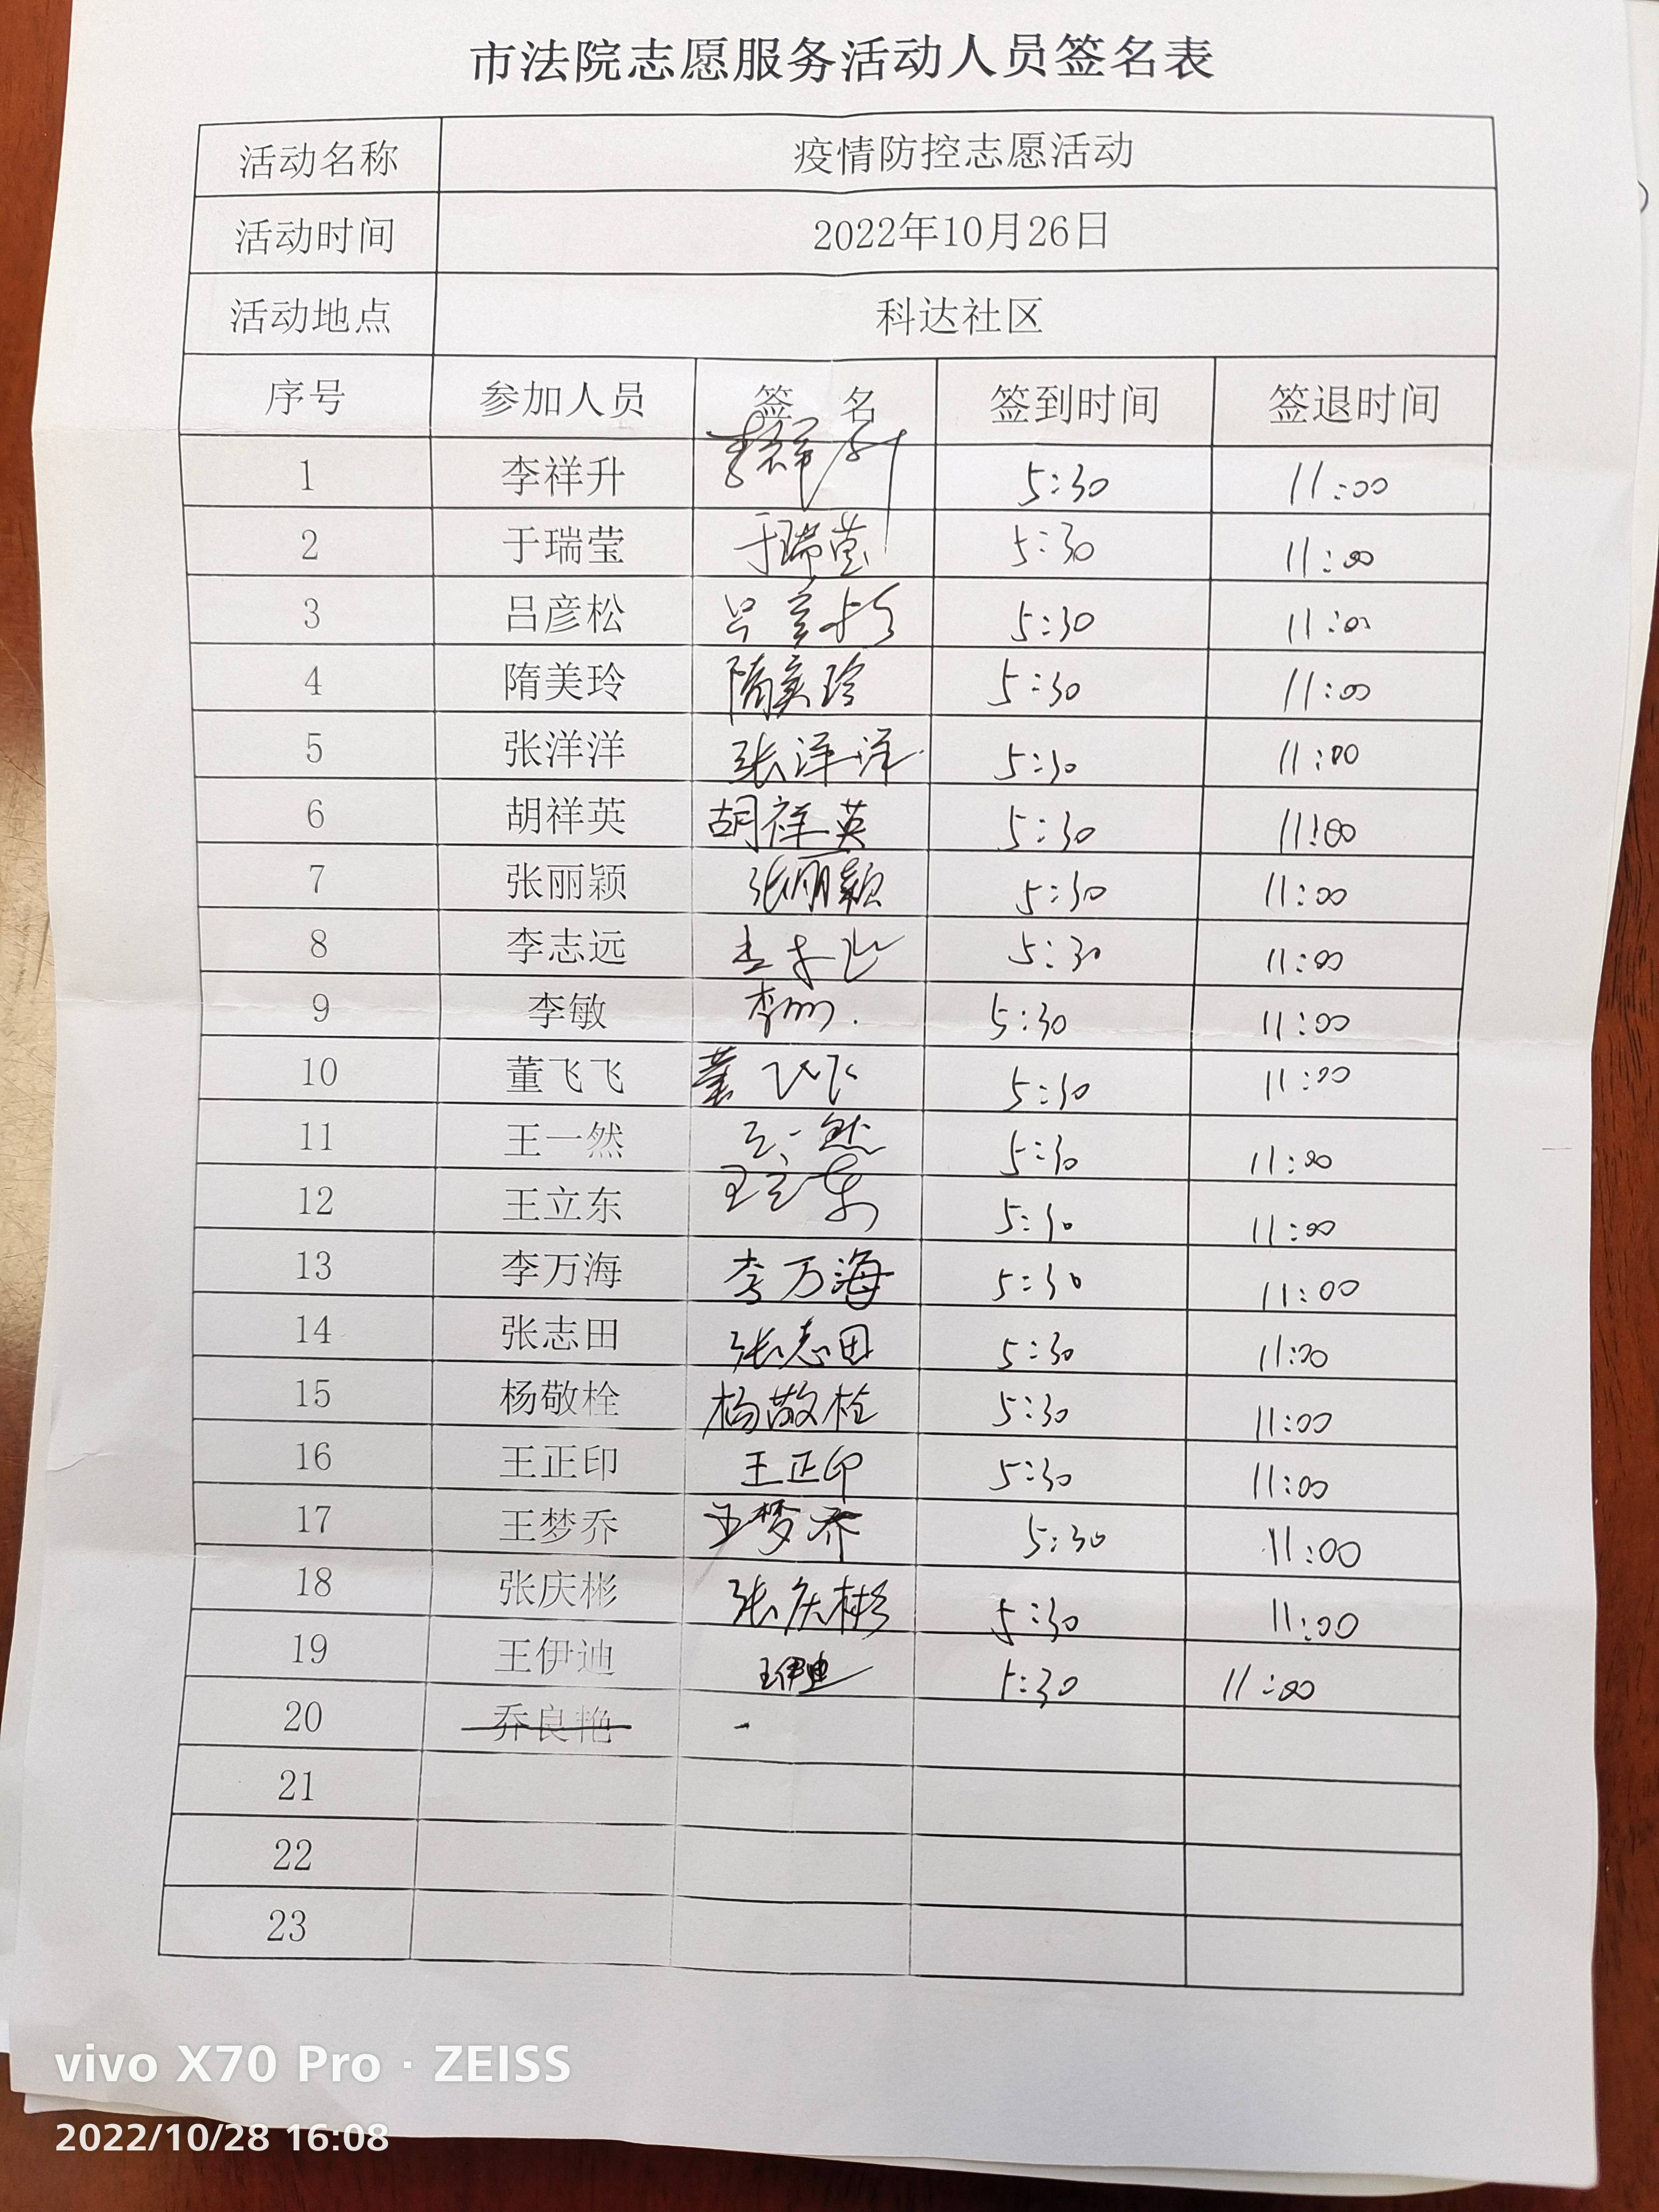 市法院志愿服务活动人员签名表
活动名称 疫情防控志愿活动
活动时间 2022年10月26日
活动地点 科达社区
序号 参加人员 签 名 签到时间 签退时间
1 李祥升 李祥升 5:30 11:00
2 于瑞莹 于瑞莹 5:30 11:00
3 吕彦松 吕彦松 5:30 11:00
4 隋美玲 隋美玲 5:30 11:00
5 张洋洋 张洋洋 5:30 11:00
6 胡祥英 胡祥英 5:30 11:00
7 张丽颖 张丽颖 5:30 11:00
8 李志远 李志远 5:30 11:00
9 李敏 李敏 5:30 11:00
10 董飞飞 董飞飞 5:30 11:00
11 王一然 王一然 5:30 11:00
12 王立东 王立东 5:30 11:00
13 李万海 李万海 5:30 11:00
14 张志田 张志田 5:30 11:00
15 杨敬栓 杨敬栓 5:30 11:00
16 王正印 王正印 5:30 11:00
17 王梦乔 王梦乔 5:30 11:00
18 张庆彬 张庆彬 5:30 11:00
19 王伊迪 王伊迪 5:30 11:00
20 乔良艳
21
22
23
vivo X70 Pro · ZEISS
2022/10/28 16:08